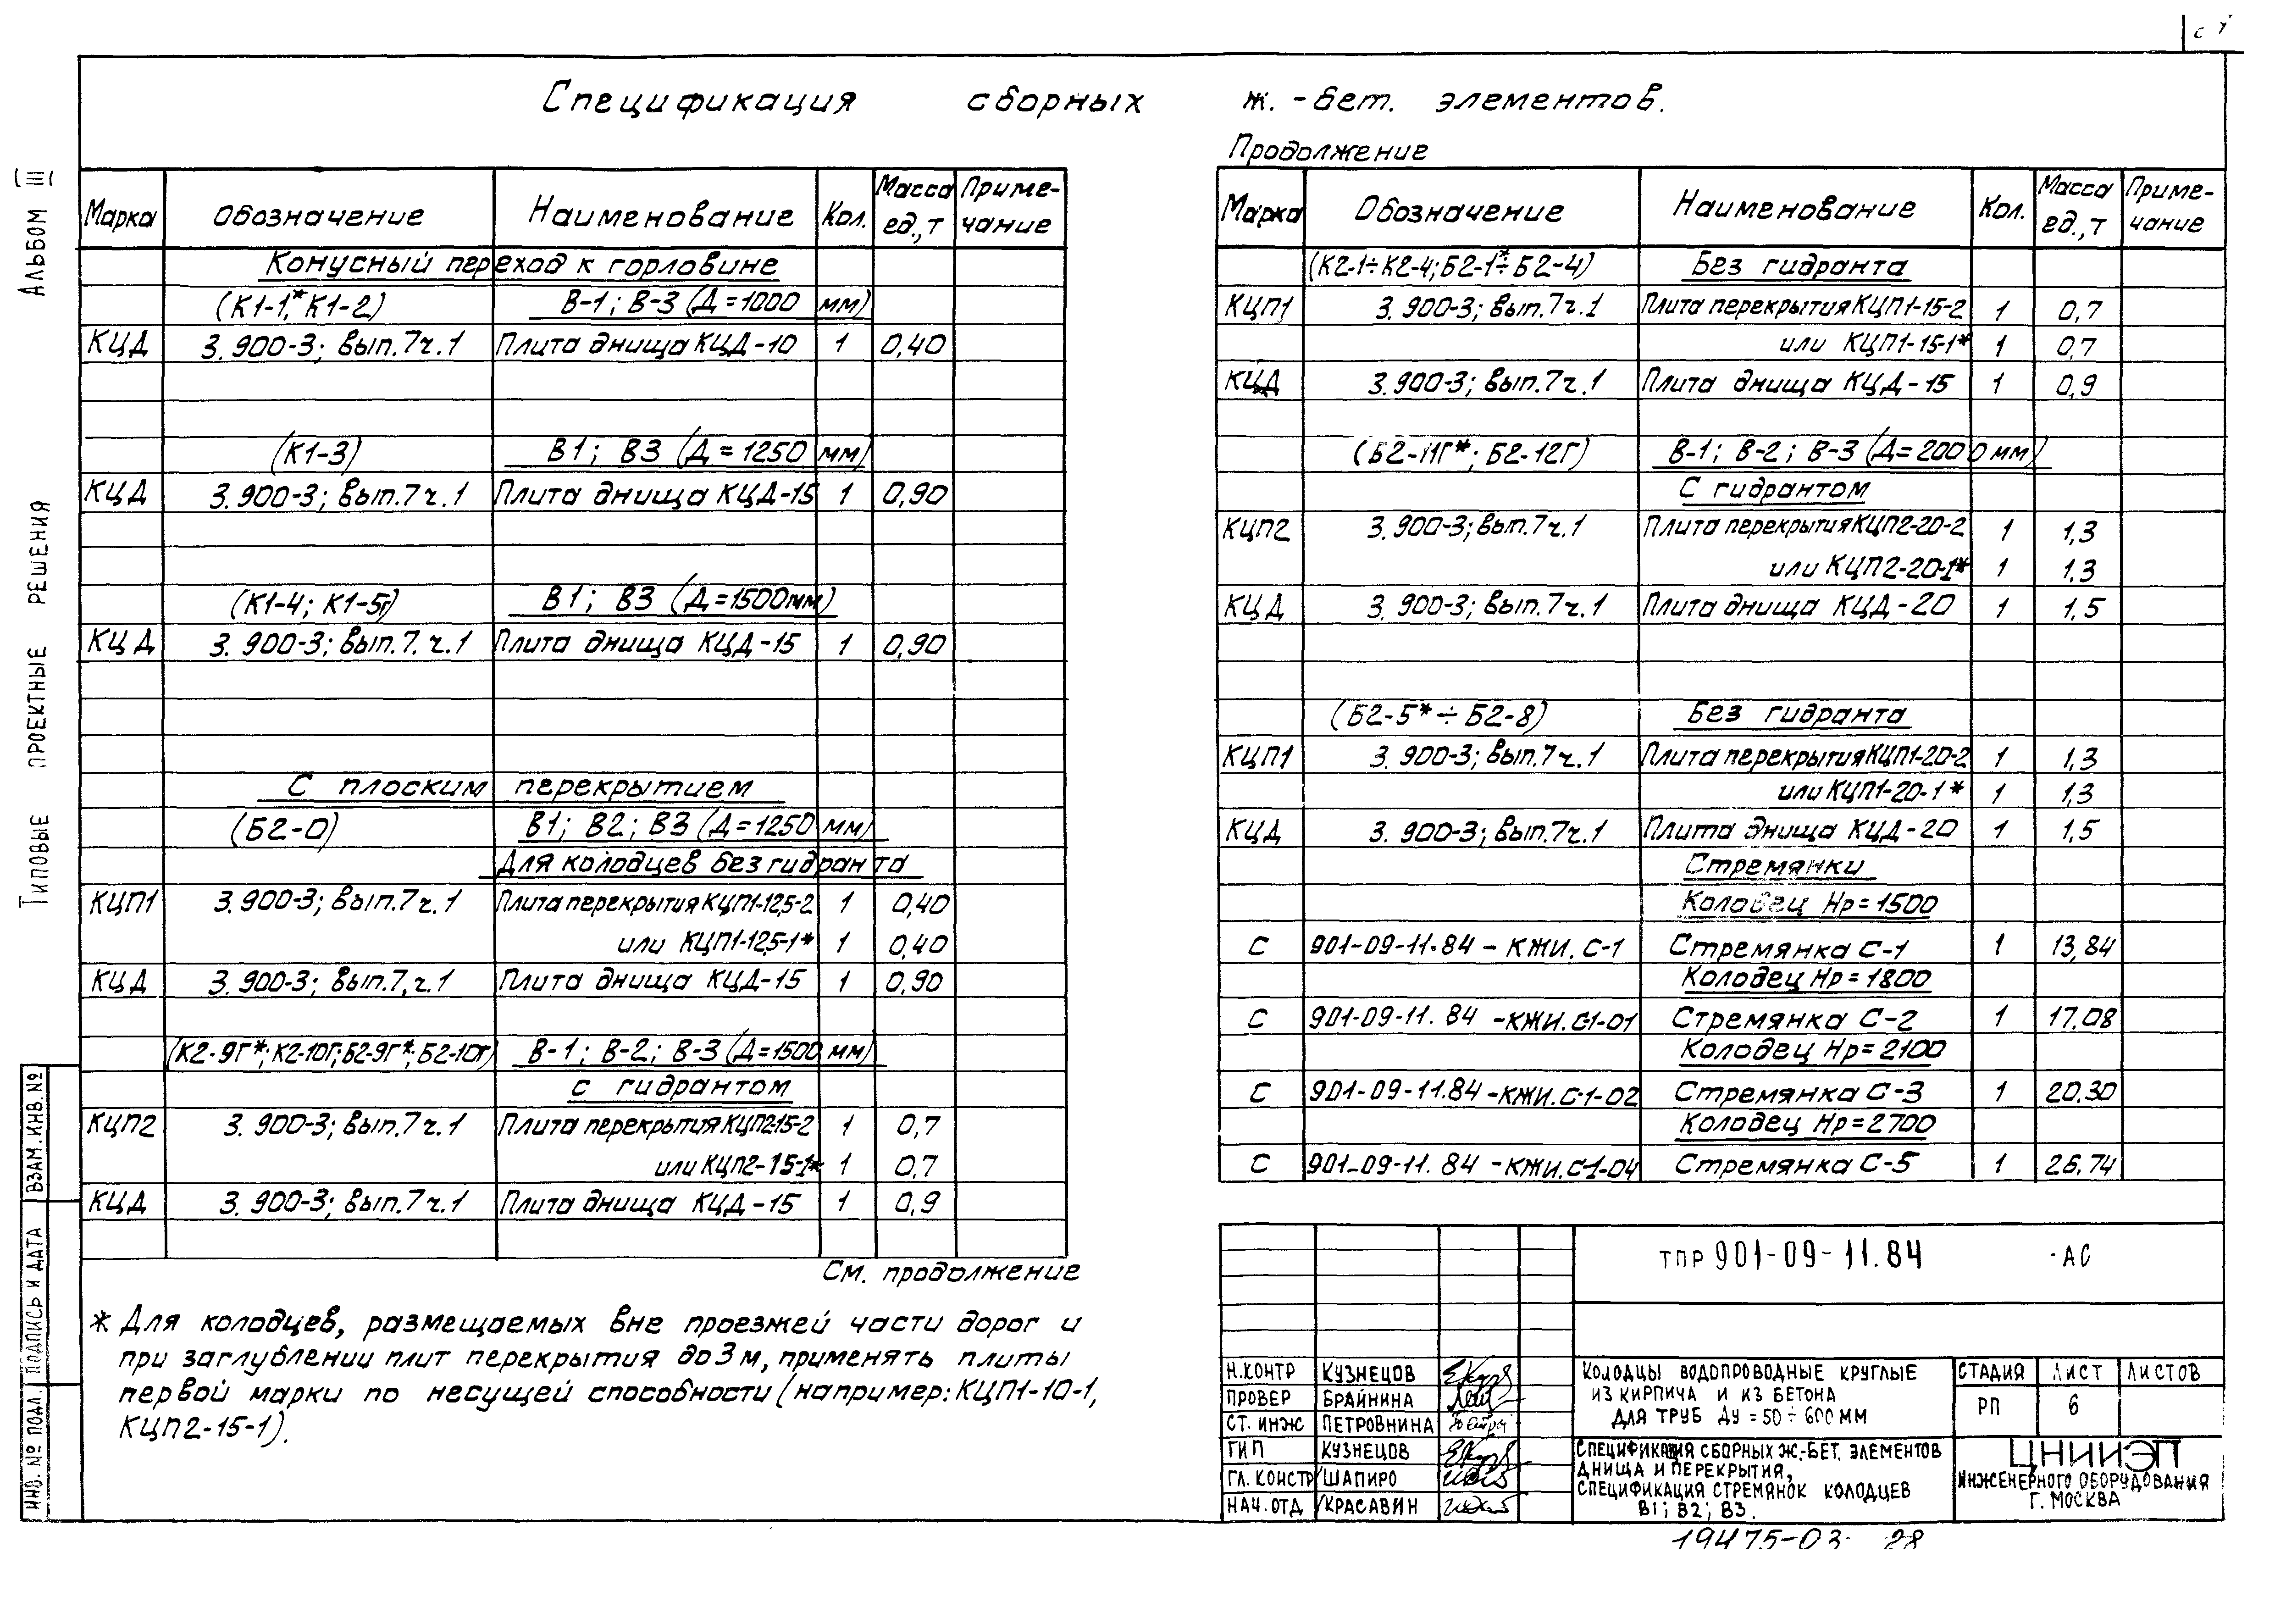 Спецификация сборных ж.-бет. элементов.
Альбом III
Типовые проектные решения
Марка Обозначение Наименование Кол. Масса ед., т Приме-чание
Конусный переход к горловине
(К1-1*, К1-2) В-1; В-3 (Д=1000 мм)
КЦД 3.900-3; вып.7ч.1 Плита днища КЦД-10 1 0,40
(К1-3) В1; В3 (Д=1250 мм)
КЦД 3.900-3; вып.7ч.1 Плита днища КЦД-15 1 0,90
(К1-4; К1-5г) В1; В3 (Д=1500мм)
КЦД 3.900-3; вып.7.ч.1 Плита днища КЦД-15 1 0,90
С плоским перекрытием
(Б2-0) В1; В2; В3 (Д=1250 мм)
Для колодцев без гидранта
КЦП1 3.900-3; вып.7ч.1 Плита перекрытия КЦП1-12,5-2 1 0,40
или КЦП1-12,5-1* 1 0,40
КЦД 3.900-3; вып.7,ч.1 Плита днища КЦД-15 1 0,90
(К2-9Г*; К2-10Г; Б2-9Г*; Б2-10Г) В-1; В-2; В-3 (Д=1500 мм)
с гидрантом
КЦП2 3.900-3; вып.7ч.1 Плита перекрытия КЦП2-15-2 1 0,7
или КЦП2-15-1* 1 0,7
КЦД 3.900-3; вып.7ч.1 Плита днища КЦД-15 1 0,9
См. продолжение
* Для колодцев, размещаемых вне проезжей части дорог и
при заглублении плит перекрытия до 3 м, применять плиты
первой марки по несущей способности (например: КЦП1-10-1,
КЦП2-15-1).
Продолжение
Марка Обозначение Наименование Кол. Масса ед., т Приме-чание
(К2-1÷К2-4; Б2-1*÷Б2-4) Без гидранта
КЦП1 3.900-3; вып.7ч.1 Плита перекрытия КЦП1-15-2 1 0,7
или КЦП1-15-1* 1 0,7
КЦД 3.900-3; вып.7ч.1 Плита днища КЦД-15 1 0,9
(Б2-11Г*; Б2-12Г) В-1; В-2; В-3 (Д=2000 мм)
С гидрантом
КЦП2 3.900-3; вып.7ч.1 Плита перекрытия КЦП2-20-2 1 1,3
или КЦП2-20-1* 1 1,3
КЦД 3.900-3; вып.7ч.1 Плита днища КЦД-20 1 1,5
(Б2-5*÷Б2-8) Без гидранта
КЦП1 3.900-3; вып.7ч.1 Плита перекрытия КЦП1-20-2 1 1,3
или КЦП1-20-1* 1 1,3
КЦД 3.900-3; вып.7ч.1 Плита днища КЦД-20 1 1,5
Стремянки
Колодец Нр=1500
С 901-09-11.84-КЖИ.С-1 Стремянка С-1 1 13,84
Колодец Нр=1800
С 901-09-11.84-КЖИ.С-1-01 Стремянка С-2 1 17.08
Колодец Нр=2100
С 901-09-11.84-КЖИ.С-1-02 Стремянка С-3 1 20.30
Колодец Нр=2700
С 901-09-11.84-КЖИ.С-1-04 Стремянка С-5 1 26.74
ТПР 901-09-11.84 -АС
Н.контр Кузнецов
Провер Брайнина
Ст. инж Петровнина
ГИП Кузнецов
Гл. констр Шапиро
Нач.отд Красавин
Колодцы водопроводные круглые
из кирпича и из бетона
для труб Ду=50÷600мм
Стадия Лист Листов
РП 6
Спецификация сборных ж.-бет. элементов
днища и перекрытия,
спецификация стремянок колодцев
В1; В2; В3.
ЦНИИЭП
инженерного оборудования
г. Москва
Инв. № подл. Подпись и дата Взам. инв. №
19475-03 28